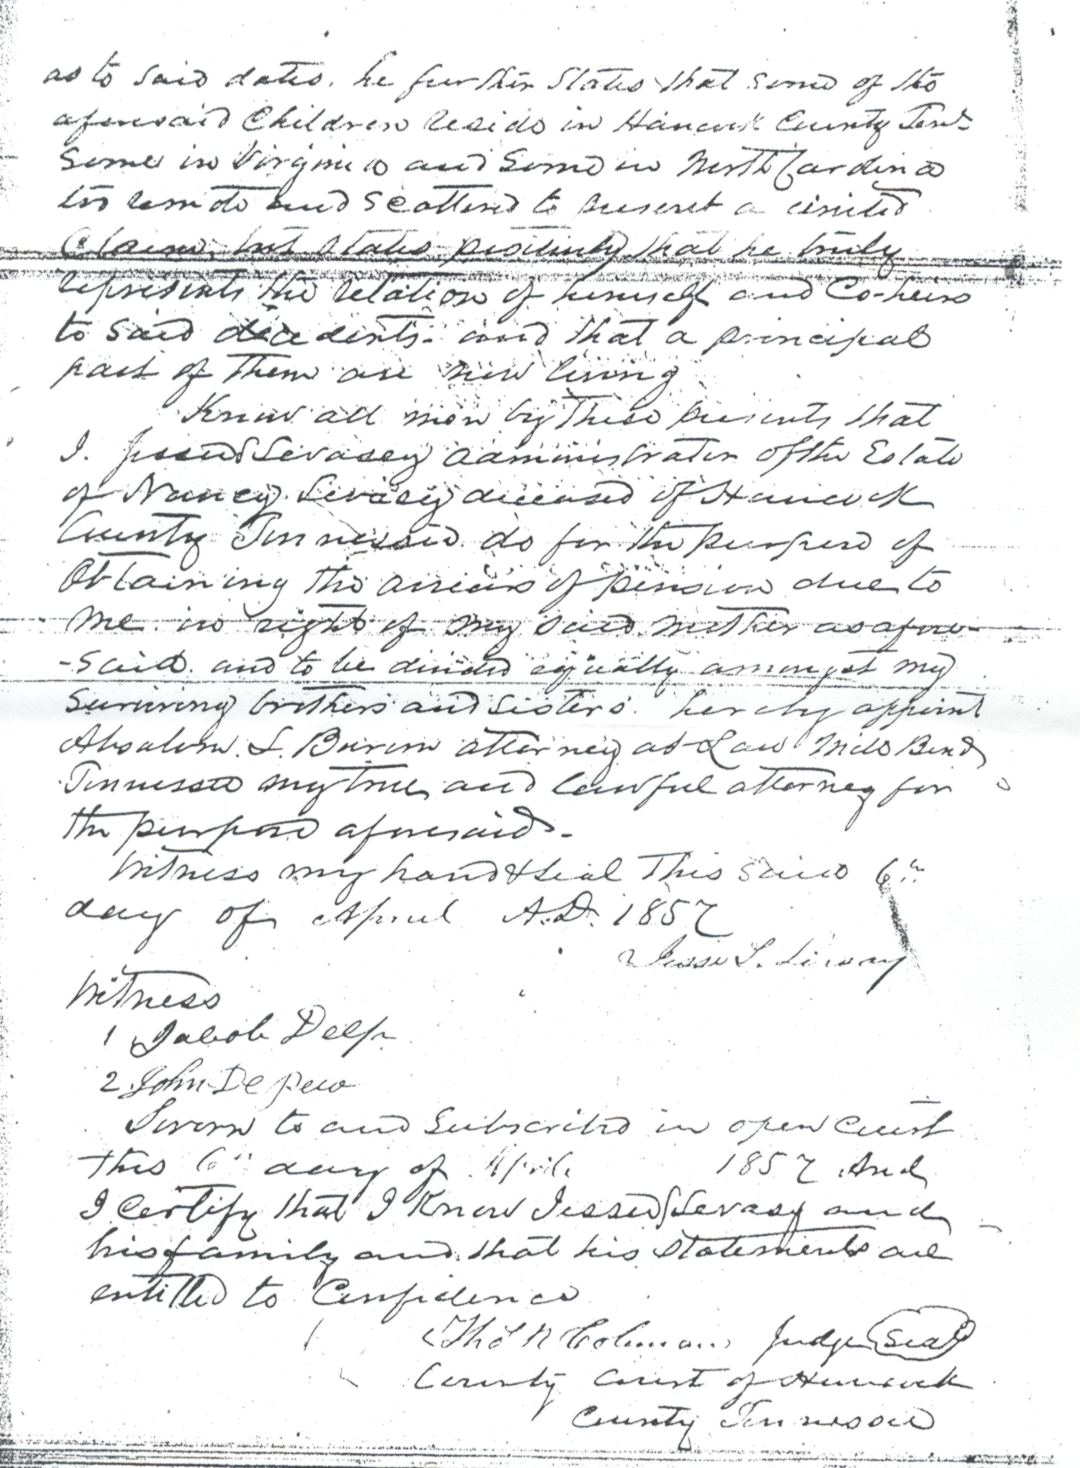 as to said dates. he further states that some of the
aforesaid Children reside in Hancock County Tenn
Some in Virginia and Some in North Carolina
too remote and Scattered to present a united
Claim, but states positively that he truly
represents the relation of himself and Co-heirs
to said decedents. and that a principal
part of them are now living
Know all men by these presents that
I. Jesse Levasey administrator of the Estate
of Nancy Levasey deceased of Hancock
County Tennessee do for the purpose of
Obtaining the arrears of pension due to
me in right of my said mother as afore-
-said. and to be divided equally amongst my
surviving brothers and sisters. hereby appoint
Absalom L. Burem attorney at Law Mill Bend
Tennessee my true and lawful attorney for
the purpose aforesaid.
Witness my hand & seal This said 6th
day of April A.D. 1857
Jesse L.
Witness
1 Jacob Delp
2 John De pew
Sworn to and Subscribed in open Court
this 6th day of April 1857 And
I Certify that I Know Jesse Levasy and
his family and that his statements are
entitled to Confidence
Thos N Coleman Judge Seal
County Court of Hancock
County Tennessee